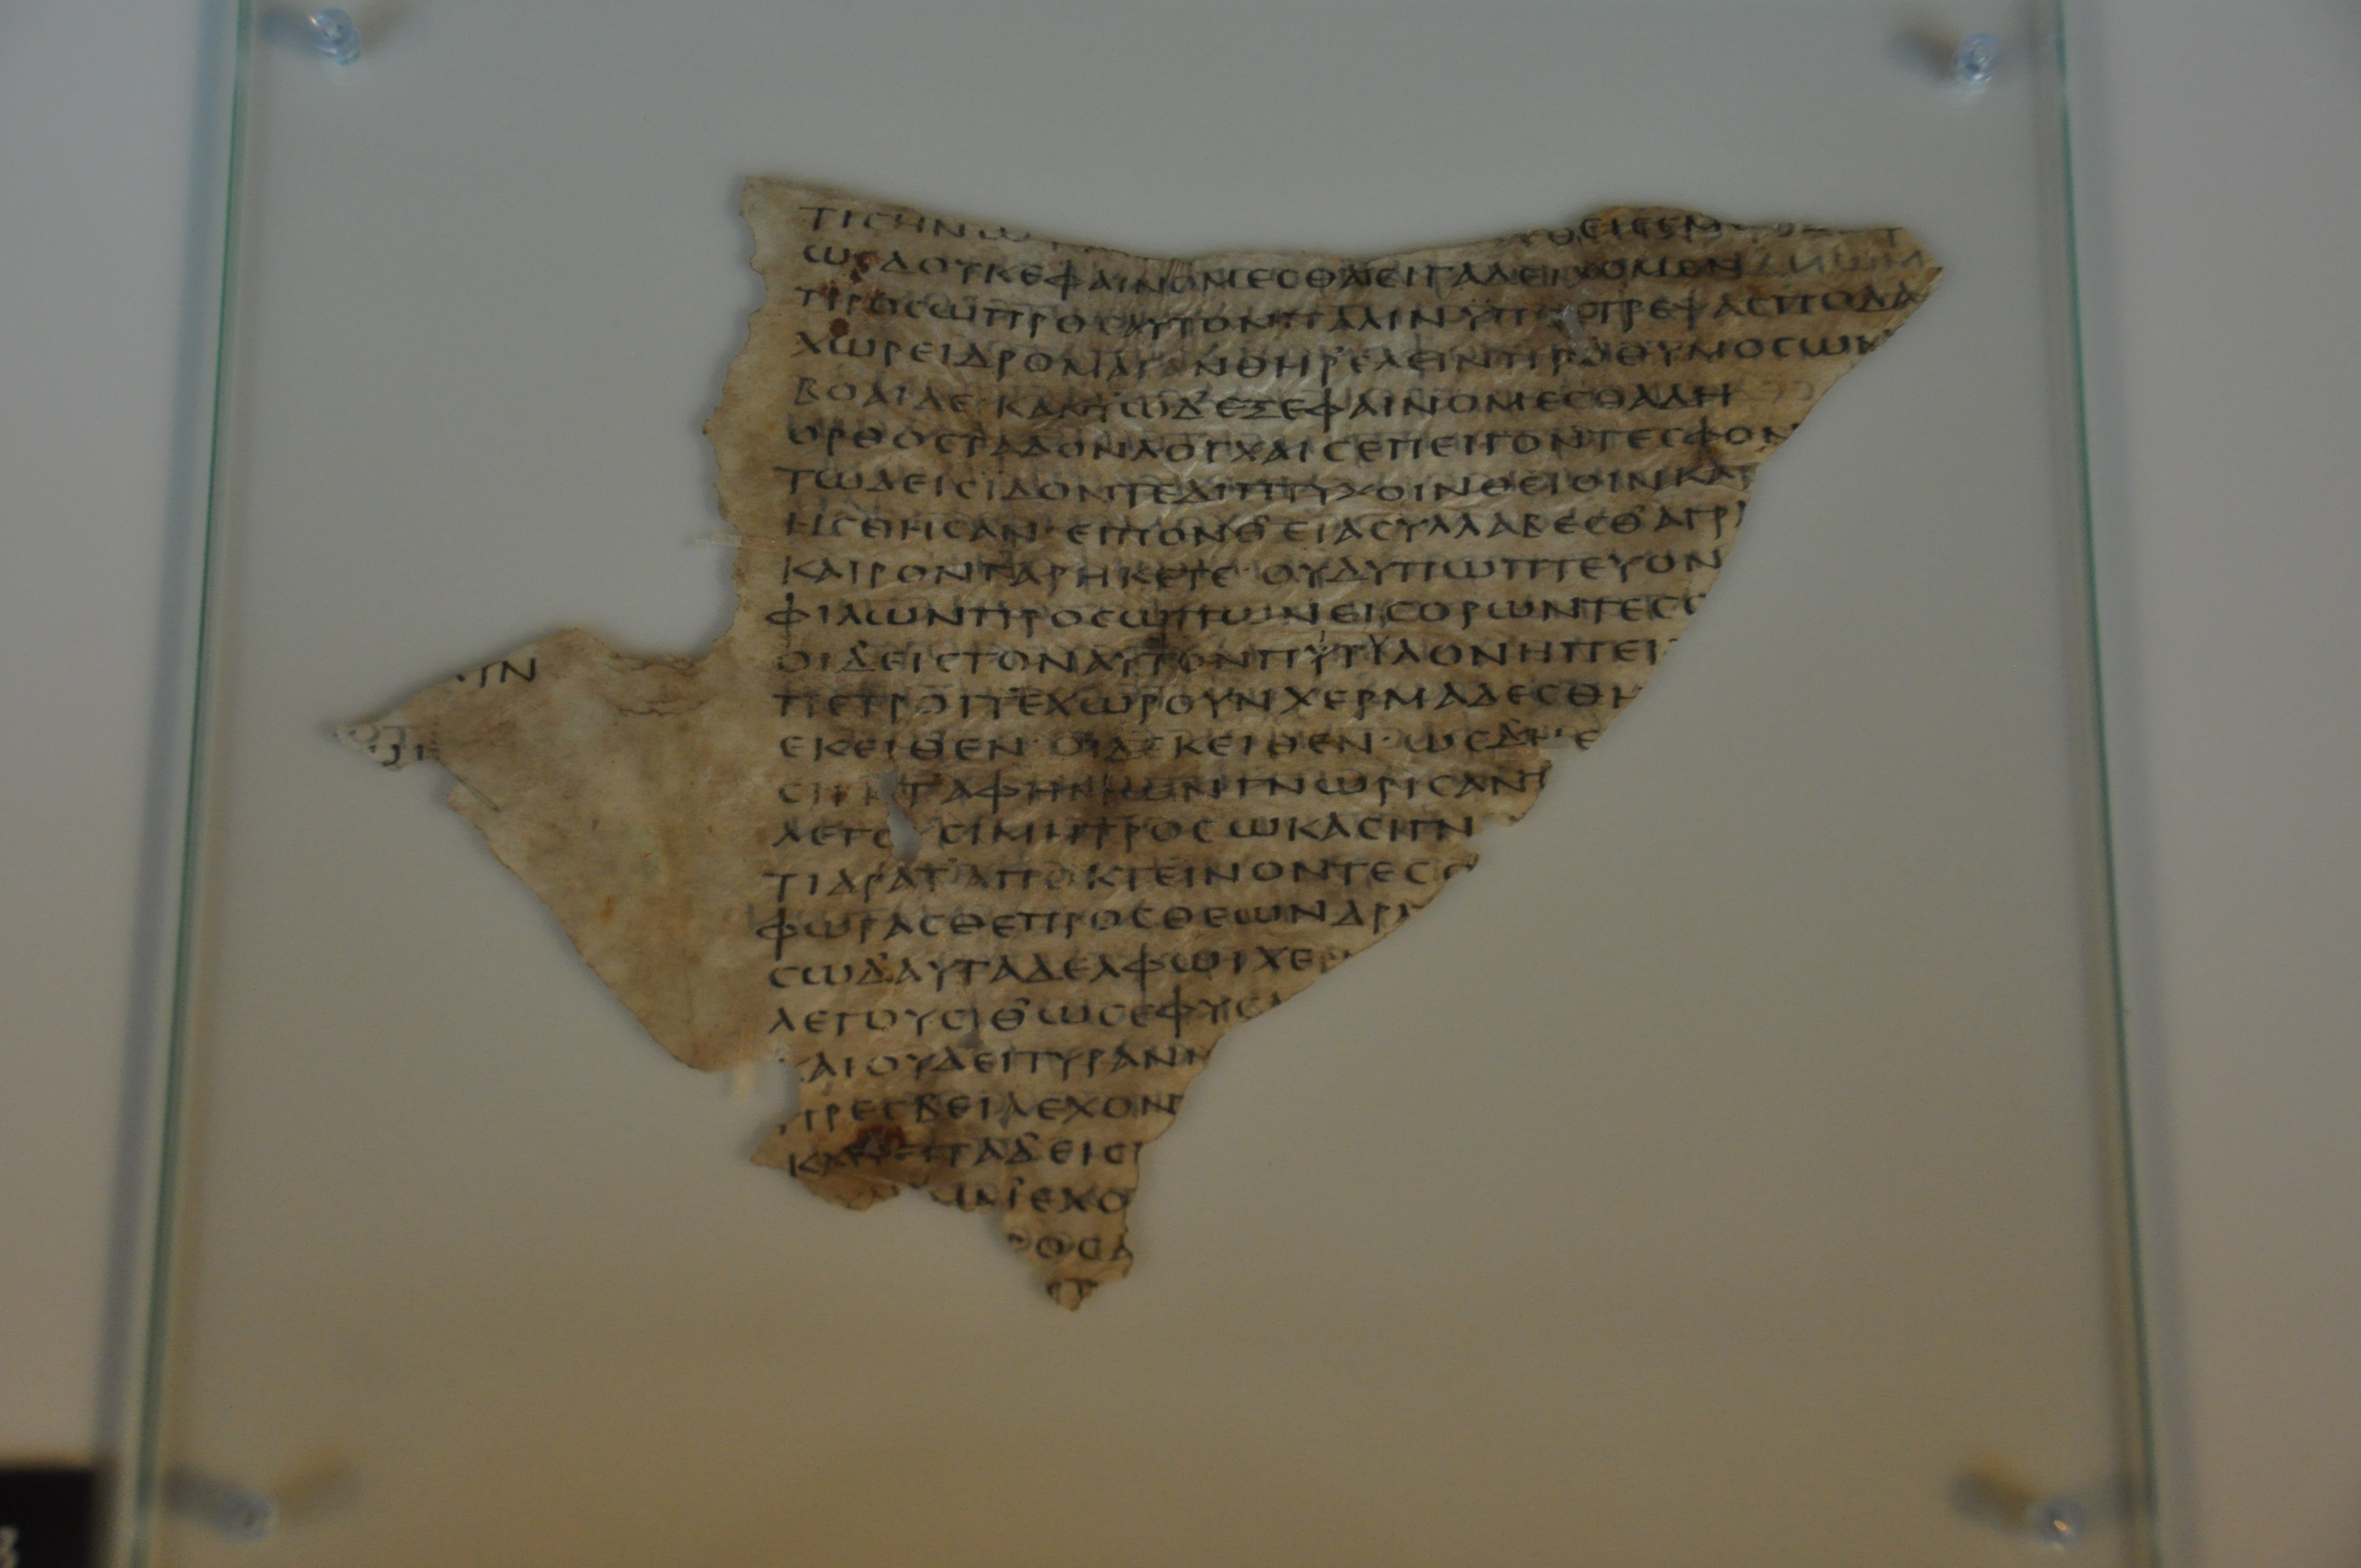 ΤΙϹΗΝΩ ΘΕΙϹΕΜ
ΩϹΔΟΥΚΕΦΑΙΝΟΜΕϹΘΑϹΕΙΓΑΔΕΙΧΟΜΕΝ
ΠΡΟϹΩΠΡΟϹΑΥΤΟΝΠΑΛΙΝΥΠΟϹΤΡΕΨΑϹΠΟΔΑ
ΧΩΡΕΙΔΡΟΜΑΙΑΝΘΗΡΕΛΕΙΝΠΡΟΘΥΜΟϹΩΝ
ΒΟΑΙΔΕ·ΚΑΝΤΩΔΕΞΕΦΑΙΝΟΜΕϹΘΑΔΗ
ΟΡΘΟϹΤΑΔΟΝΛΟΓΧΑΙϹΕΠΕΙΓΟΝΤΕϹΦΟΝ
ΤΩΔΕΙϹΙΔΟΝΤΕΔΙΠΤΥΧΟΙΝΘΕΙΟΙΝΚΑΡ
ΗϹΘΗϹΑΝ·ΕΙΠΟΝΘ᾽ΕΙΑϹΥΛΛΑΒΕϹΘ᾽ΑΓΡ
ΚΑΙΡΟΝΓΑΡΗΚΕΤΕ·ΟΥΔΥΠΩΠΤΕΥΟΝ
ΦΙΛΩΝΠΡΟϹΩΠΩΝΕΙϹΟΡΩΝΤΕϹ
ΟΙΔΕΙϹΤΟΝΑΥΤΟΝΠΥΤΥΛΟΝΗΠΕΙΓ
ΠΕΤΡΟΙΤΕΧΩΡΟΥΝΧΕΡΜΑΔΕϹΘΗ
ΕΚΕΙΘΕΝ·ΟΙΔΕΚΕΙΘΕΝ·ΩϹΔΗ
ϹΙΓΗΤΑΦΗΜΩΝΓΝΩΡΙϹΑΝ
ΛΕΓΟΥϹΙΜΗΤΡΟϹΩΚΑϹΙΓΝ
ΤΙΔΡΑΤΑΠΟΚΤΕΙΝΟΝΤΕϹ
ΦΩΡΑϹΘΕΠΡΟϹΘΕΩΝΔΡΑ
ϹΩΔΑΥΤΑΔΕΛΦΩΙΧΕΡ
ΛΕΓΟΥϹΙΘ᾽ΩϹΕΦΥϹΑ
ΚΑΙΟΥΔΕΙΤΥΡΑΝΝ
ΠΡΕϹΒΕΙΑΕΧΟΝΤ
ΚΑΠΕΙΤΑΔΕΙϹ
ΕΧΟ
ΟϹΑ